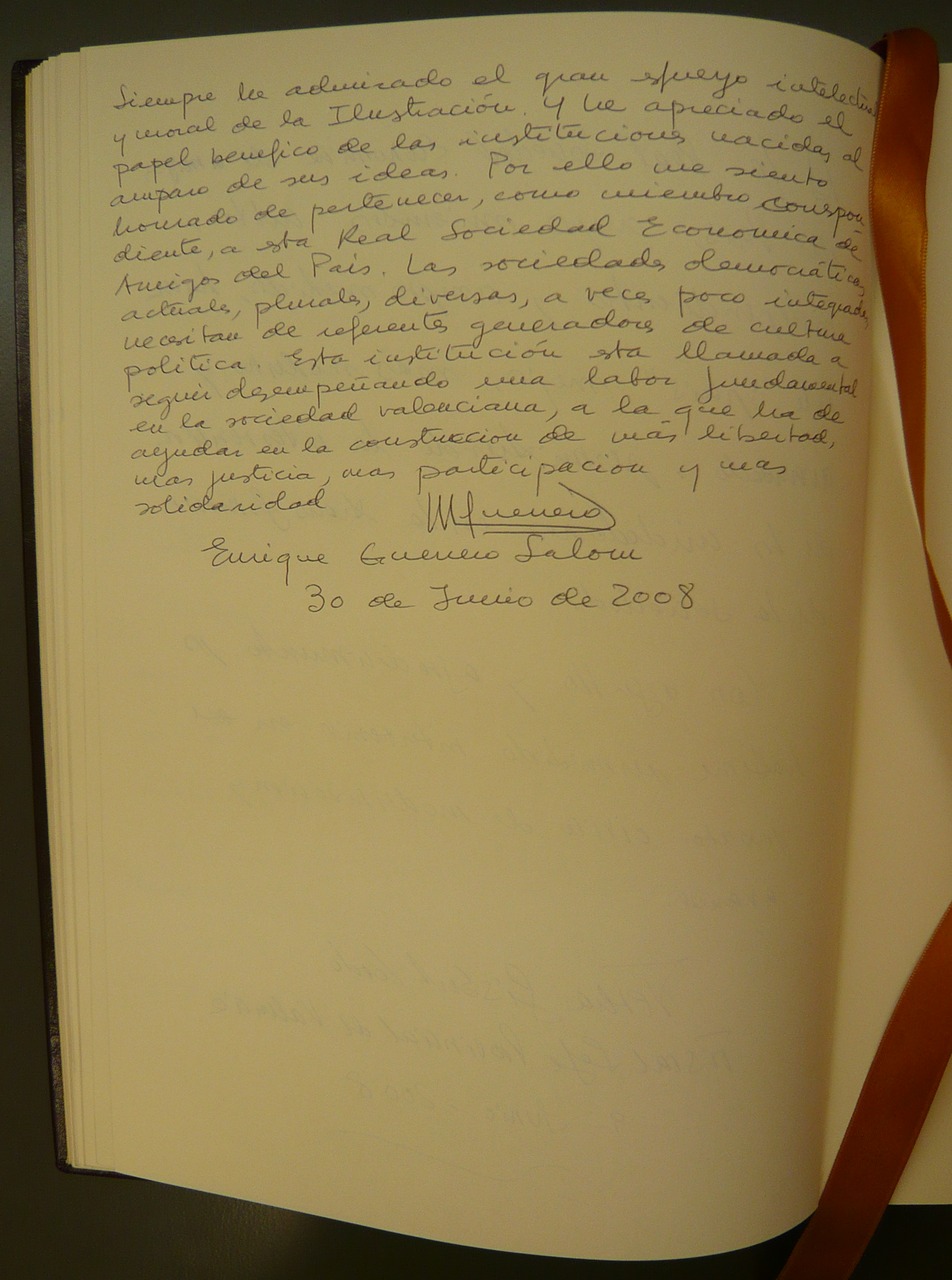 Siempre he admirado el gran esfuerzo intelectual
y moral de la Ilustración. Y he apreciado el
papel benefico de las instituciones nacidas al
amparo de sus ideas. Por ello me siento
honrado de pertenecer, como miembro correspon
diente, a esta Real Sociedad Economica de
Amigos del País. Las sociedades democráticas
actuales, plurales, diversas, a veces poco integradas,
necesitan de referentes generadores de cultura
politica. Esta institución esta llamada a
seguir desempeñando una labor fundamental
en la sociedad valenciana, a la que ha de
ayudar en la construccion de más libertad,
mas justicia, mas participacion y mas
solidaridad
Enrique Guerrero Salom
30 de Junio de 2008